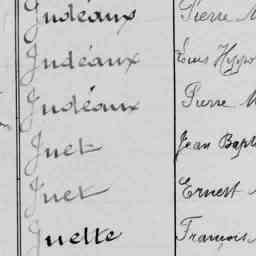 Judéaux Pierre
Judéaux Louis Hyppo
Judéaux Pierre
Juet Jean Bapt
Juet Ernest
Juette François